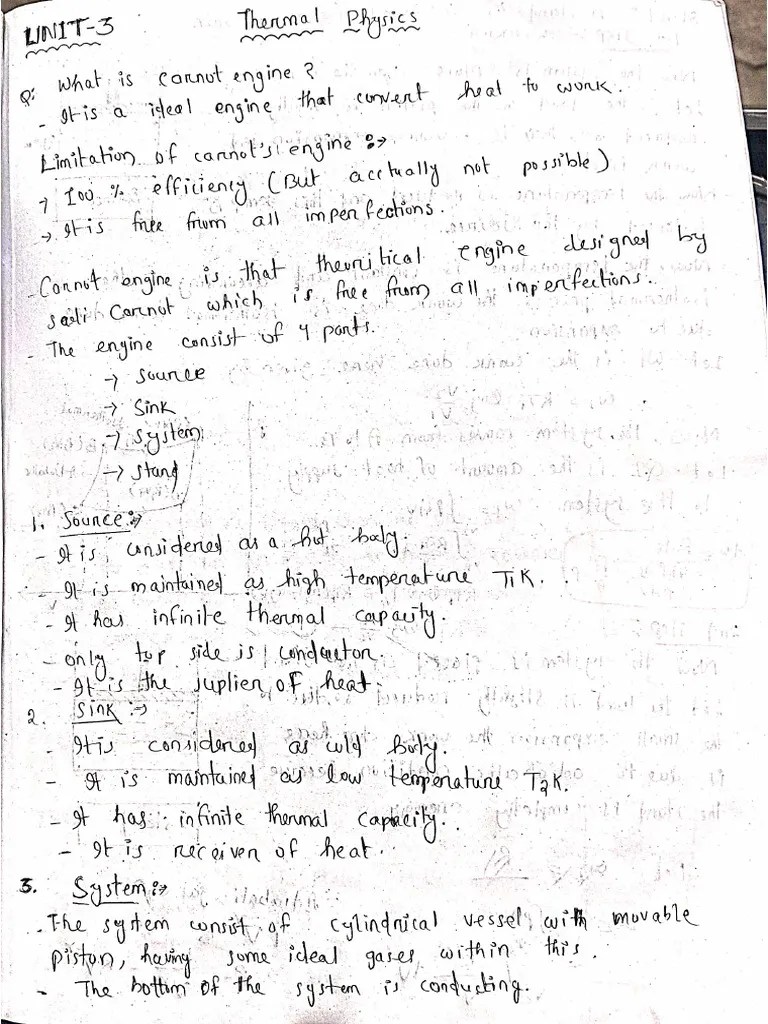 UNIT-3
Thermal Physics
Q: What is carnot engine?
- It is a ideal engine that convert heat to work.
Limitation of carnot's engine :→
→ 100 % efficiency (But acctually not possible)
→ It is free from all imperfections.
- Carnot engine is that theoritical engine designed by
sadi Carnot which is free from all imperfections.
- The engine consist of 4 parts.
→ source
→ Sink
→ System
→ stand
1. Source :→
- It is considered as a hot body.
- It is maintained as high temperature T1K.
- It has infinite thermal capacity.
- only top side is conductor.
- It is the suplier of heat.
2. Sink :→
- It is considered as cold body.
- It is maintained as low temperature T2K.
- It has infinite thermal capacity.
- It is reciever of heat.
3. System :→
- The system consist of cylindrical vessel with movable
piston, having some ideal gases within this.
- The bottom of the system is conducting.